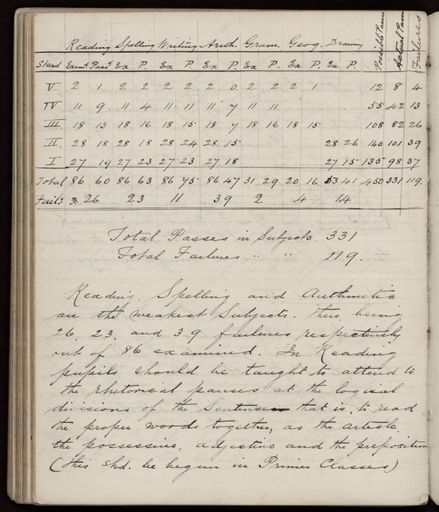 Reading Spelling Writing Arith. Gram. Geog. Drawing Possible Passes Actual Passes Failures
Stand Exam'd Pass'd Ex P. Ex P. Ex P. Ex P. Ex P. Ex P.
V 2 1 2 2 2 2 2 0 2 2 2 1 12 8 4
IV 11 9 11 4 11 11 11 7 11 11 55 42 13
III 18 13 18 16 18 15 18 7 18 16 18 15 108 82 26
II 28 18 28 18 28 24 28 15 28 26 140 101 39
I 27 19 27 23 27 23 27 18 27 15 135 98 37
Total 86 60 86 63 86 75 86 47 31 29 20 16 53 41 450 331 119
Fails 26 23 11 39 2 4 14
Total Passes in Subjects 331
Total Failures " " 119.
Reading, Spelling and Arithmetic
are the weakest subjects. There being
26, 23, and 39 failures respectively
out of 86 examined. In Reading
pupils should be taught to attend to
the rhetorical pauses at the logical
divisions of the Sentence that is, to read
the proper words together, as the article
the possessive, adjective and the preposition
(this shd. be begun in Primer Classes)